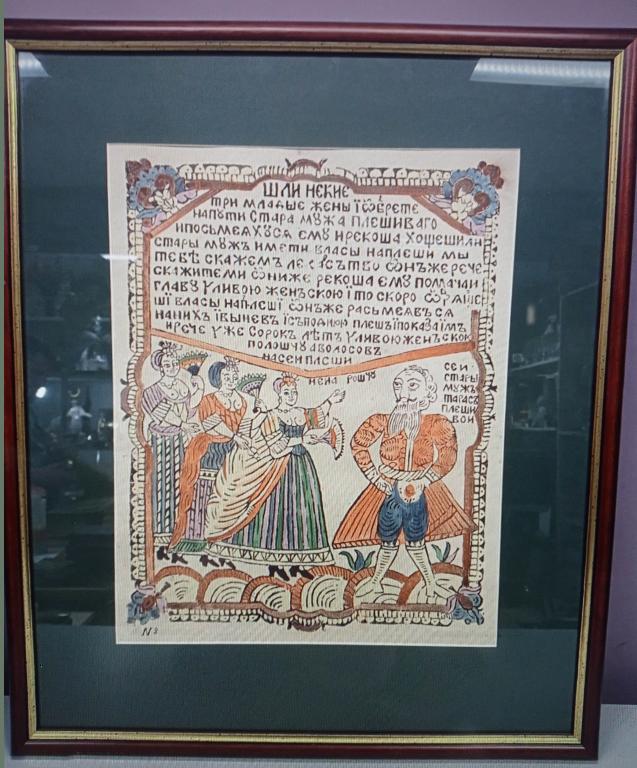 ШЛИ НЕКИЕ
ТРИ МЛАДЫЕ ЖЕНЫ Ї ѠБРЕТЕ
НАПУТИ СТАРА МУЖА ПЛЕШИВАГО
ИПОСЬМЕЯХУСЯ ЕМУ ИРЕКОША ХОЩЕШИЛИ
СТАРЫ МУЖЪ ИМЕТИ ВЛАСЫ НАПЛЕШИ МЫ
ТЕБѢ СКАЖЕМЪ ЛЕКАСЬТВО ѠНЪЖЕ РЕЧЕ
СКАЖИТЕМИ ѠНИЖЕ РЕКОША ЕМУ ПОМАЧАИ
ГЛАВУ УЛИВОЮ ЖЕНЪСКОЮ Ї ТО СКОРО
ШІ ВЛАСЫ НАПЛЕШІ ѠНЪЖЕ РАСЬМЕЯВЪСЯ
НАНИХЪ ЇВЫНЕВЪ ПЛЕШЪ ЇПОКАЗА ЇМЪ
ИРЕЧЕ УЖЕ СОРОКЪ ЛѢТЪ УЛИВОЮ ЖЕНЪСКОЮ
ПОЛОЩУ АВОЛОСОВЪ
НАСЕИ ПЛЕШИ
НЕИЛА РОЩУ
СЕИ
СТАРЫ
МУЖЪ
ТАРАСЪ
ПЛЕШИ
ВОИ
N3